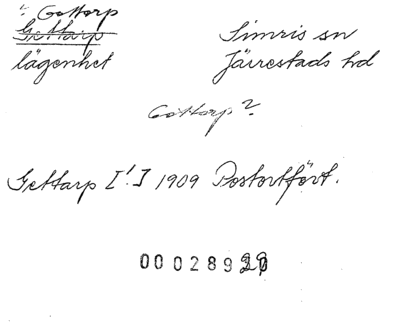 ? Gottorp
Gettarp
lägenhet
Simris sn
Järrestads hd
Gottorp?
Gettarp [!] 1909 Postortfört.
000289